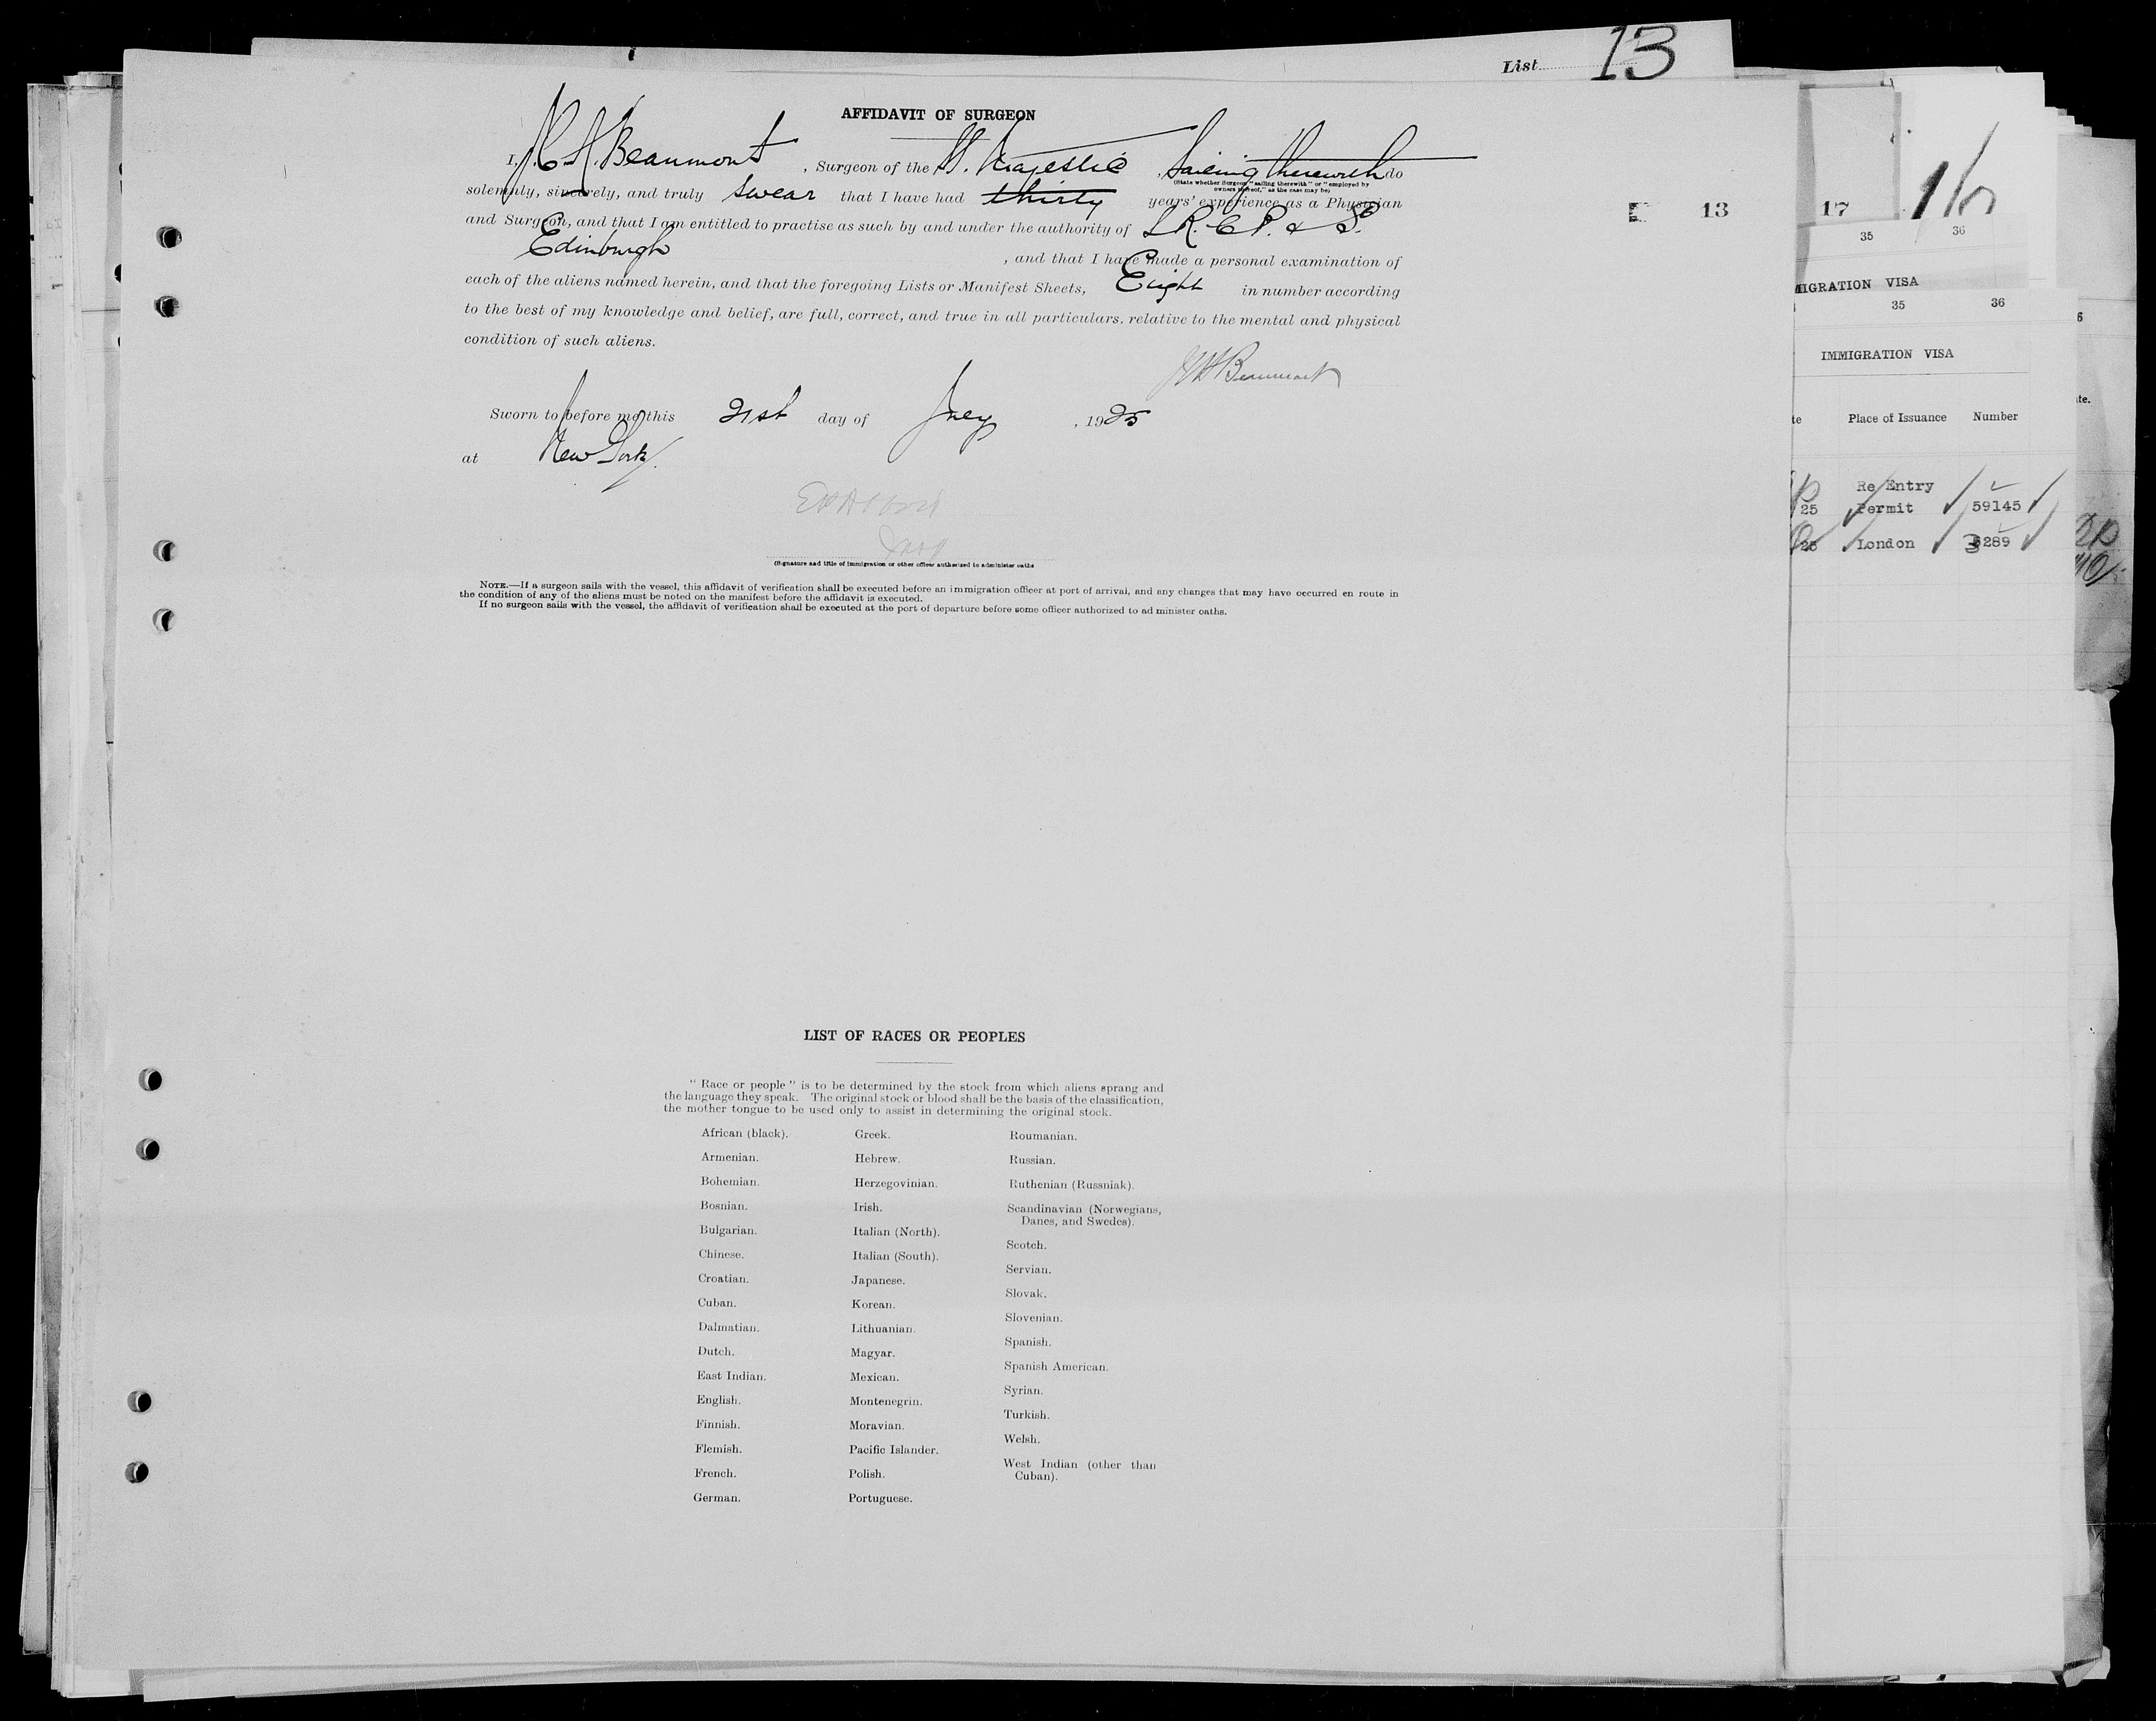 List 13
AFFIDAVIT OF SURGEON
I, Beaumont, Surgeon of the Majestic, Sailing therewith do
(State whether Surgeon "sailing therewith" or "employed by
owners thereof," as the case may be)
solemnly, sincerely, and truly swear that I have had thirty years' experience as a Physician
and Surgeon, and that I am entitled to practise as such by and under the authority of L.R.C.P. & S.
Edinburgh, and that I have made a personal examination of
each of the aliens named herein, and that the foregoing Lists or Manifest Sheets, Eight in number according
to the best of my knowledge and belief, are full, correct, and true in all particulars. relative to the mental and physical
condition of such aliens.
Beaumont
Sworn to before me this 21st day of July, 1925
at New York.
(Signature and title of immigration or other officer authorized to administer oaths
NOTE.—If a surgeon sails with the vessel, this affidavit of verification shall be executed before an immigration officer at port of arrival, and any changes that may have occurred en route in
the condition of any of the aliens must be noted on the manifest before the affidavit is executed.
If no surgeon sails with the vessel, the affidavit of verification shall be executed at the port of departure before some officer authorized to ad minister oaths.
LIST OF RACES OR PEOPLES
"Race or people" is to be determined by the stock from which aliens sprang and
the language they speak. The original stock or blood shall be the basis of the classification,
the mother tongue to be used only to assist in determining the original stock.
African (black).
Armenian.
Bohemian.
Bosnian.
Bulgarian.
Chinese.
Croatian.
Cuban.
Dalmatian.
Dutch.
East Indian.
English.
Finnish.
Flemish.
French.
German.
Greek.
Hebrew.
Herzegovinian.
Irish.
Italian (North).
Italian (South).
Japanese.
Korean.
Lithuanian.
Magyar.
Mexican.
Montenegrin.
Moravian.
Pacific Islander.
Polish.
Portuguese.
Roumanian.
Russian.
Ruthenian (Russniak).
Scandinavian (Norwegians,
Danes, and Swedes).
Scotch.
Servian.
Slovak.
Slovenian.
Spanish.
Spanish American.
Syrian.
Turkish.
Welsh.
West Indian (other than
Cuban).
13
17
35 36
MIGRATION VISA
35 36
IMMIGRATION VISA
te Place of Issuance Number
Re Entry
25 Permit 59145
25 London 3289
6
te.